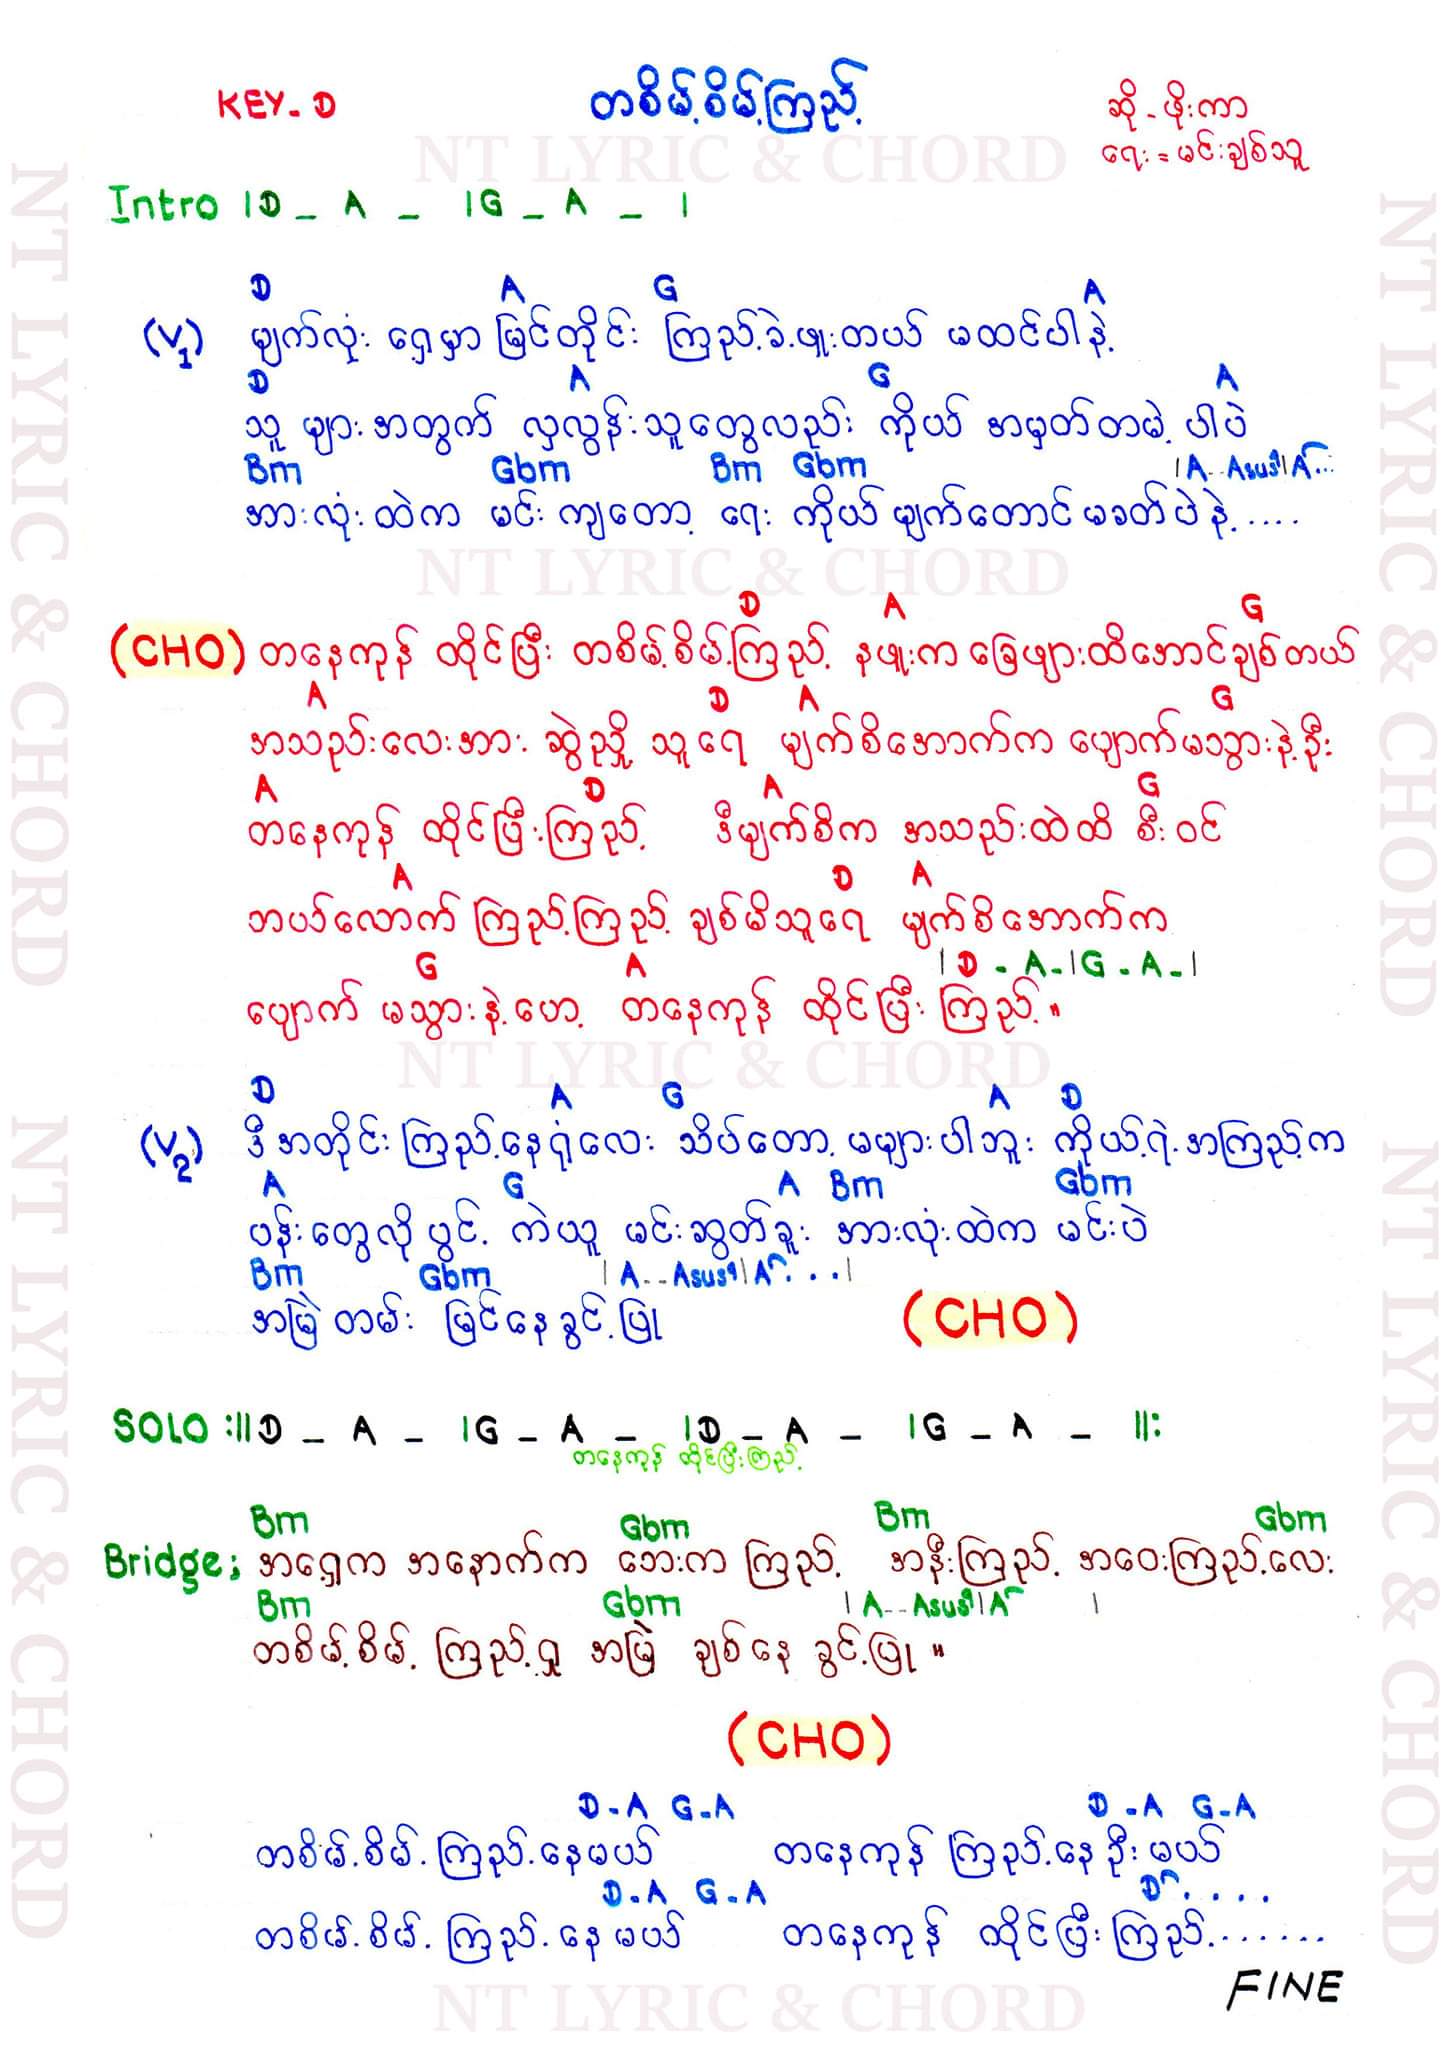 KEY - D
တစိမ့်စိမ့်ကြည့်
ဆို - ဖိုးကာ
ရေး = မင်းချစ်သူ
NT LYRIC & CHORD
Intro | D _ A _ | G _ A _ |
D A G A
(V1) မျက်လုံး ရှေ့မှာ မြင်တိုင်း ကြည့်ခဲ့ဖူးတယ် မထင်ပါနဲ့
D A G A
သူ များအတွက် လှလွန်းသူတွေလည်း ကိုယ် အမှတ်တမဲ့ ပါပဲ
Bm Gbm Bm Gbm | A - - Asus4 | A ...
အားလုံးထဲက မင်းကျတော့ ရေး ကိုယ် မျက်တောင်မခတ်ပဲနဲ့ ....
NT LYRIC & CHORD
D A G
(CHO) တနေကုန် ထိုင်ပြီး တစိမ့်စိမ့်ကြည့် နဖူးက ခြေဖျားထိအောင်ချစ်တယ်
A D A G
အသည်းလေးအား ဆွဲညှို့ သူရေ မျက်စိအောက်က ပျောက်မသွားနဲ့ဦး
A D A G
တနေကုန် ထိုင်ပြီးကြည့် ဒီမျက်စိက အသည်းထဲထိ စီးဝင်
A D A
ဘယ်လောက် ကြည့်ကြည့် ချစ်မိသူရေ မျက်စိအောက်က
G A | D - A - | G - A - |
ပျောက် မသွားနဲ့ဟေ့ တနေကုန် ထိုင်ပြီး ကြည့် ။
NT LYRIC & CHORD
D A G A D
(V2) ဒီအတိုင်း ကြည့်နေရုံလေး သိပ်တော့ မများပါဘူး ကိုယ့်ရဲ့အကြည့်က
A G A Bm Gbm
ပန်းတွေလို ပွင့် ကဲယူ မင်းဆွတ်ခူး အားလုံးထဲက မင်းပဲ
Bm Gbm | A - - Asus4 | A . . . |
အမြဲ တမ်း မြင်နေခွင့်ပြု
(CHO)
SOLO :|| D _ A _ | G _ A _ | D _ A _ | G _ A _ ||:
တနေကုန် ထိုင်ပြီးကြည့်
Bm Gbm Bm Gbm
Bridge; အရှေ့က အနောက်က ဘေးက ကြည့် အနီးကြည့် အဝေးကြည့်လေး
Bm Gbm | A - - Asus4 | A |
တစိမ့်စိမ့် ကြည့်ရှု အမြဲ ချစ်နေ ခွင့်ပြု ။
(CHO)
D - A G - A D - A G - A
တစိမ့်စိမ့်ကြည့်နေမယ် တနေကုန် ကြည့်နေဦးမယ်
D - A G - A D . . . .
တစိမ့်စိမ့်ကြည့်နေမယ် တနေကုန် ထိုင်ပြီးကြည့် .......
FINE
NT LYRIC & CHORD
NT LYRIC & CHORD
NT LYRIC & CHORD
NT LYRIC & CHORD
NT LYRIC & CHORD